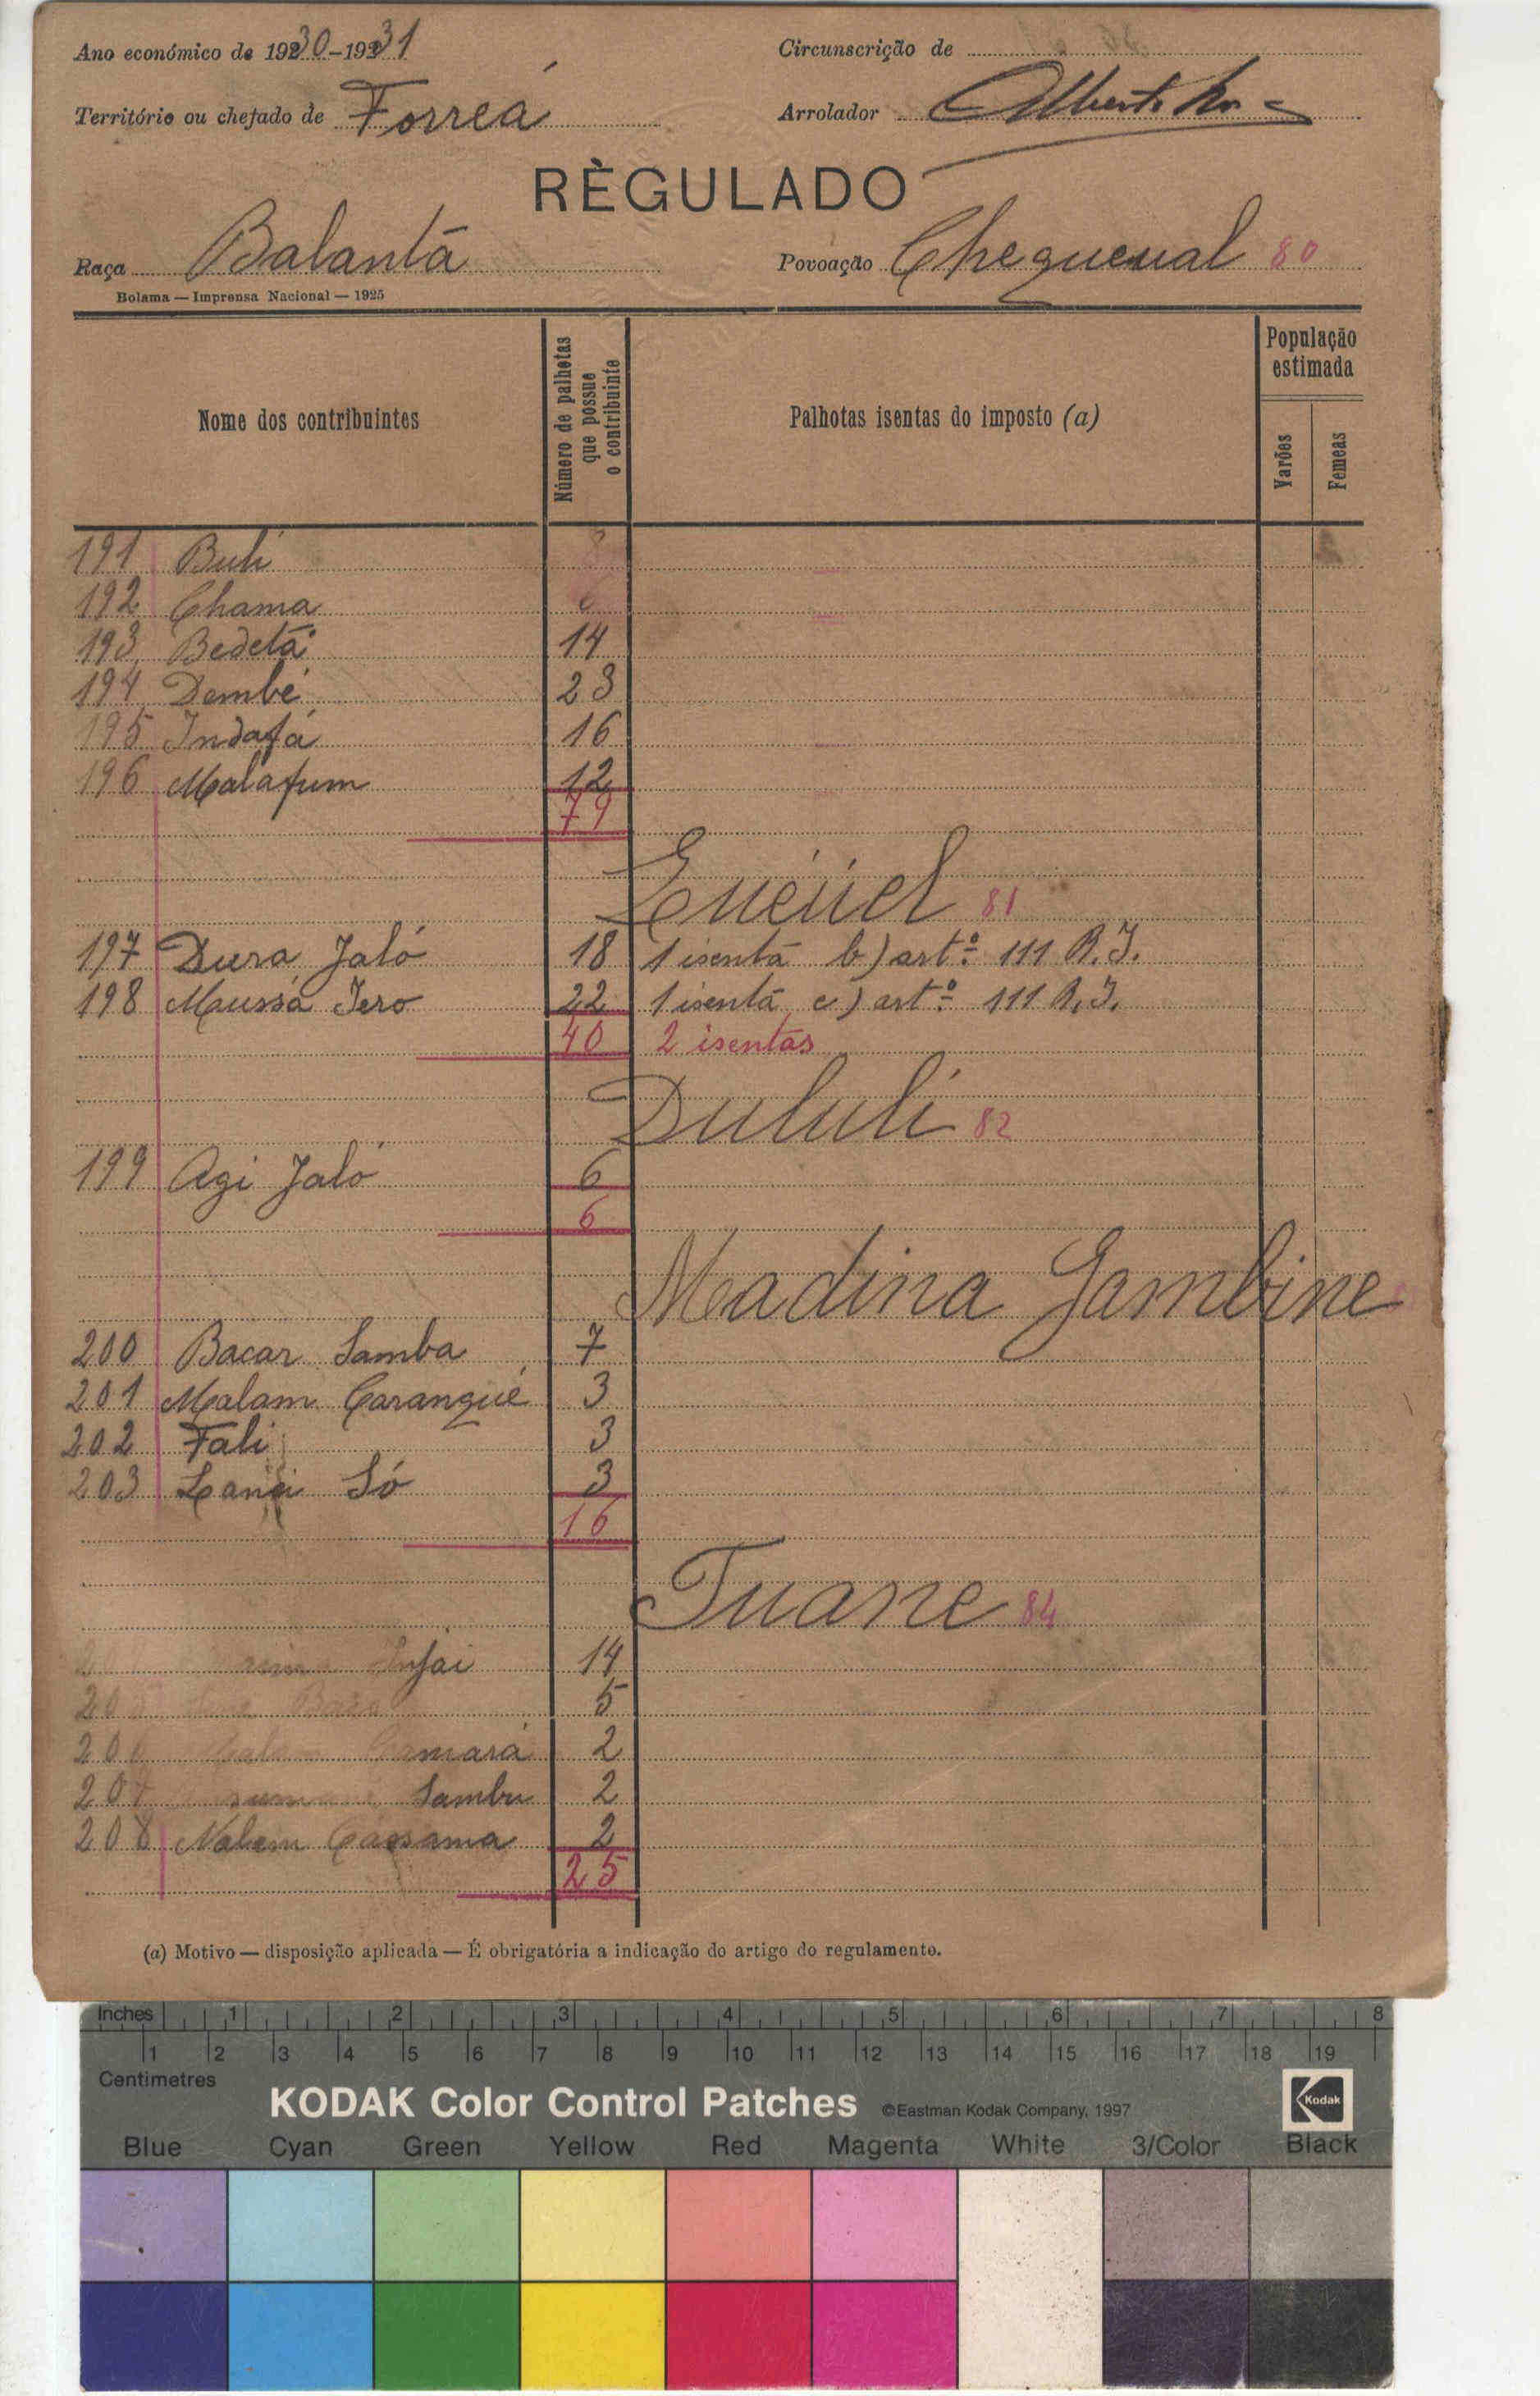 Ano económico de 1930-1931
Circunscrição de
Território ou chefado de Forreá
Arrolador Alberto
RÈGULADO
Raça Balantã
Povoação Chequeual 80
Bolama — Imprensa Nacional — 1925
Nome dos contribuintes
Número de palhotas que possue o contribuinte
Palhotas isentas do imposto (a)
População estimada
Varões
Femeas
191 Buli
192 Chama
193 Bedetá 14
194 Dembé 23
195 Indafá 16
196 Malafum 12
79
81
197 Dura Jaló 18 1 isentã b) artº 111 R.I.
198 Mussá Iero 22 1 isentã c) artº 111 R.I.
40 2 isentas
Dululi 82
199 Agi Jaló 6
6
Madina Jambine
200 Bacar Samba 7
201 Malam Carangué 3
202 Fali 3
203 Só 3
16
Tuane 84
Injai 14
5
Camará 2
207 Sambu 2
208 Nalem Cassama 2
25
(a) Motivo — disposição aplicada — É obrigatória a indicação do artigo do regulamento.
Inches 1 2 3 4 5 6 7 8
1 2 3 4 5 6 7 8 9 10 11 12 13 14 15 16 17 18 19
Centimetres
KODAK Color Control Patches ©Eastman Kodak Company, 1997 Kodak
Blue Cyan Green Yellow Red Magenta White 3/Color Black